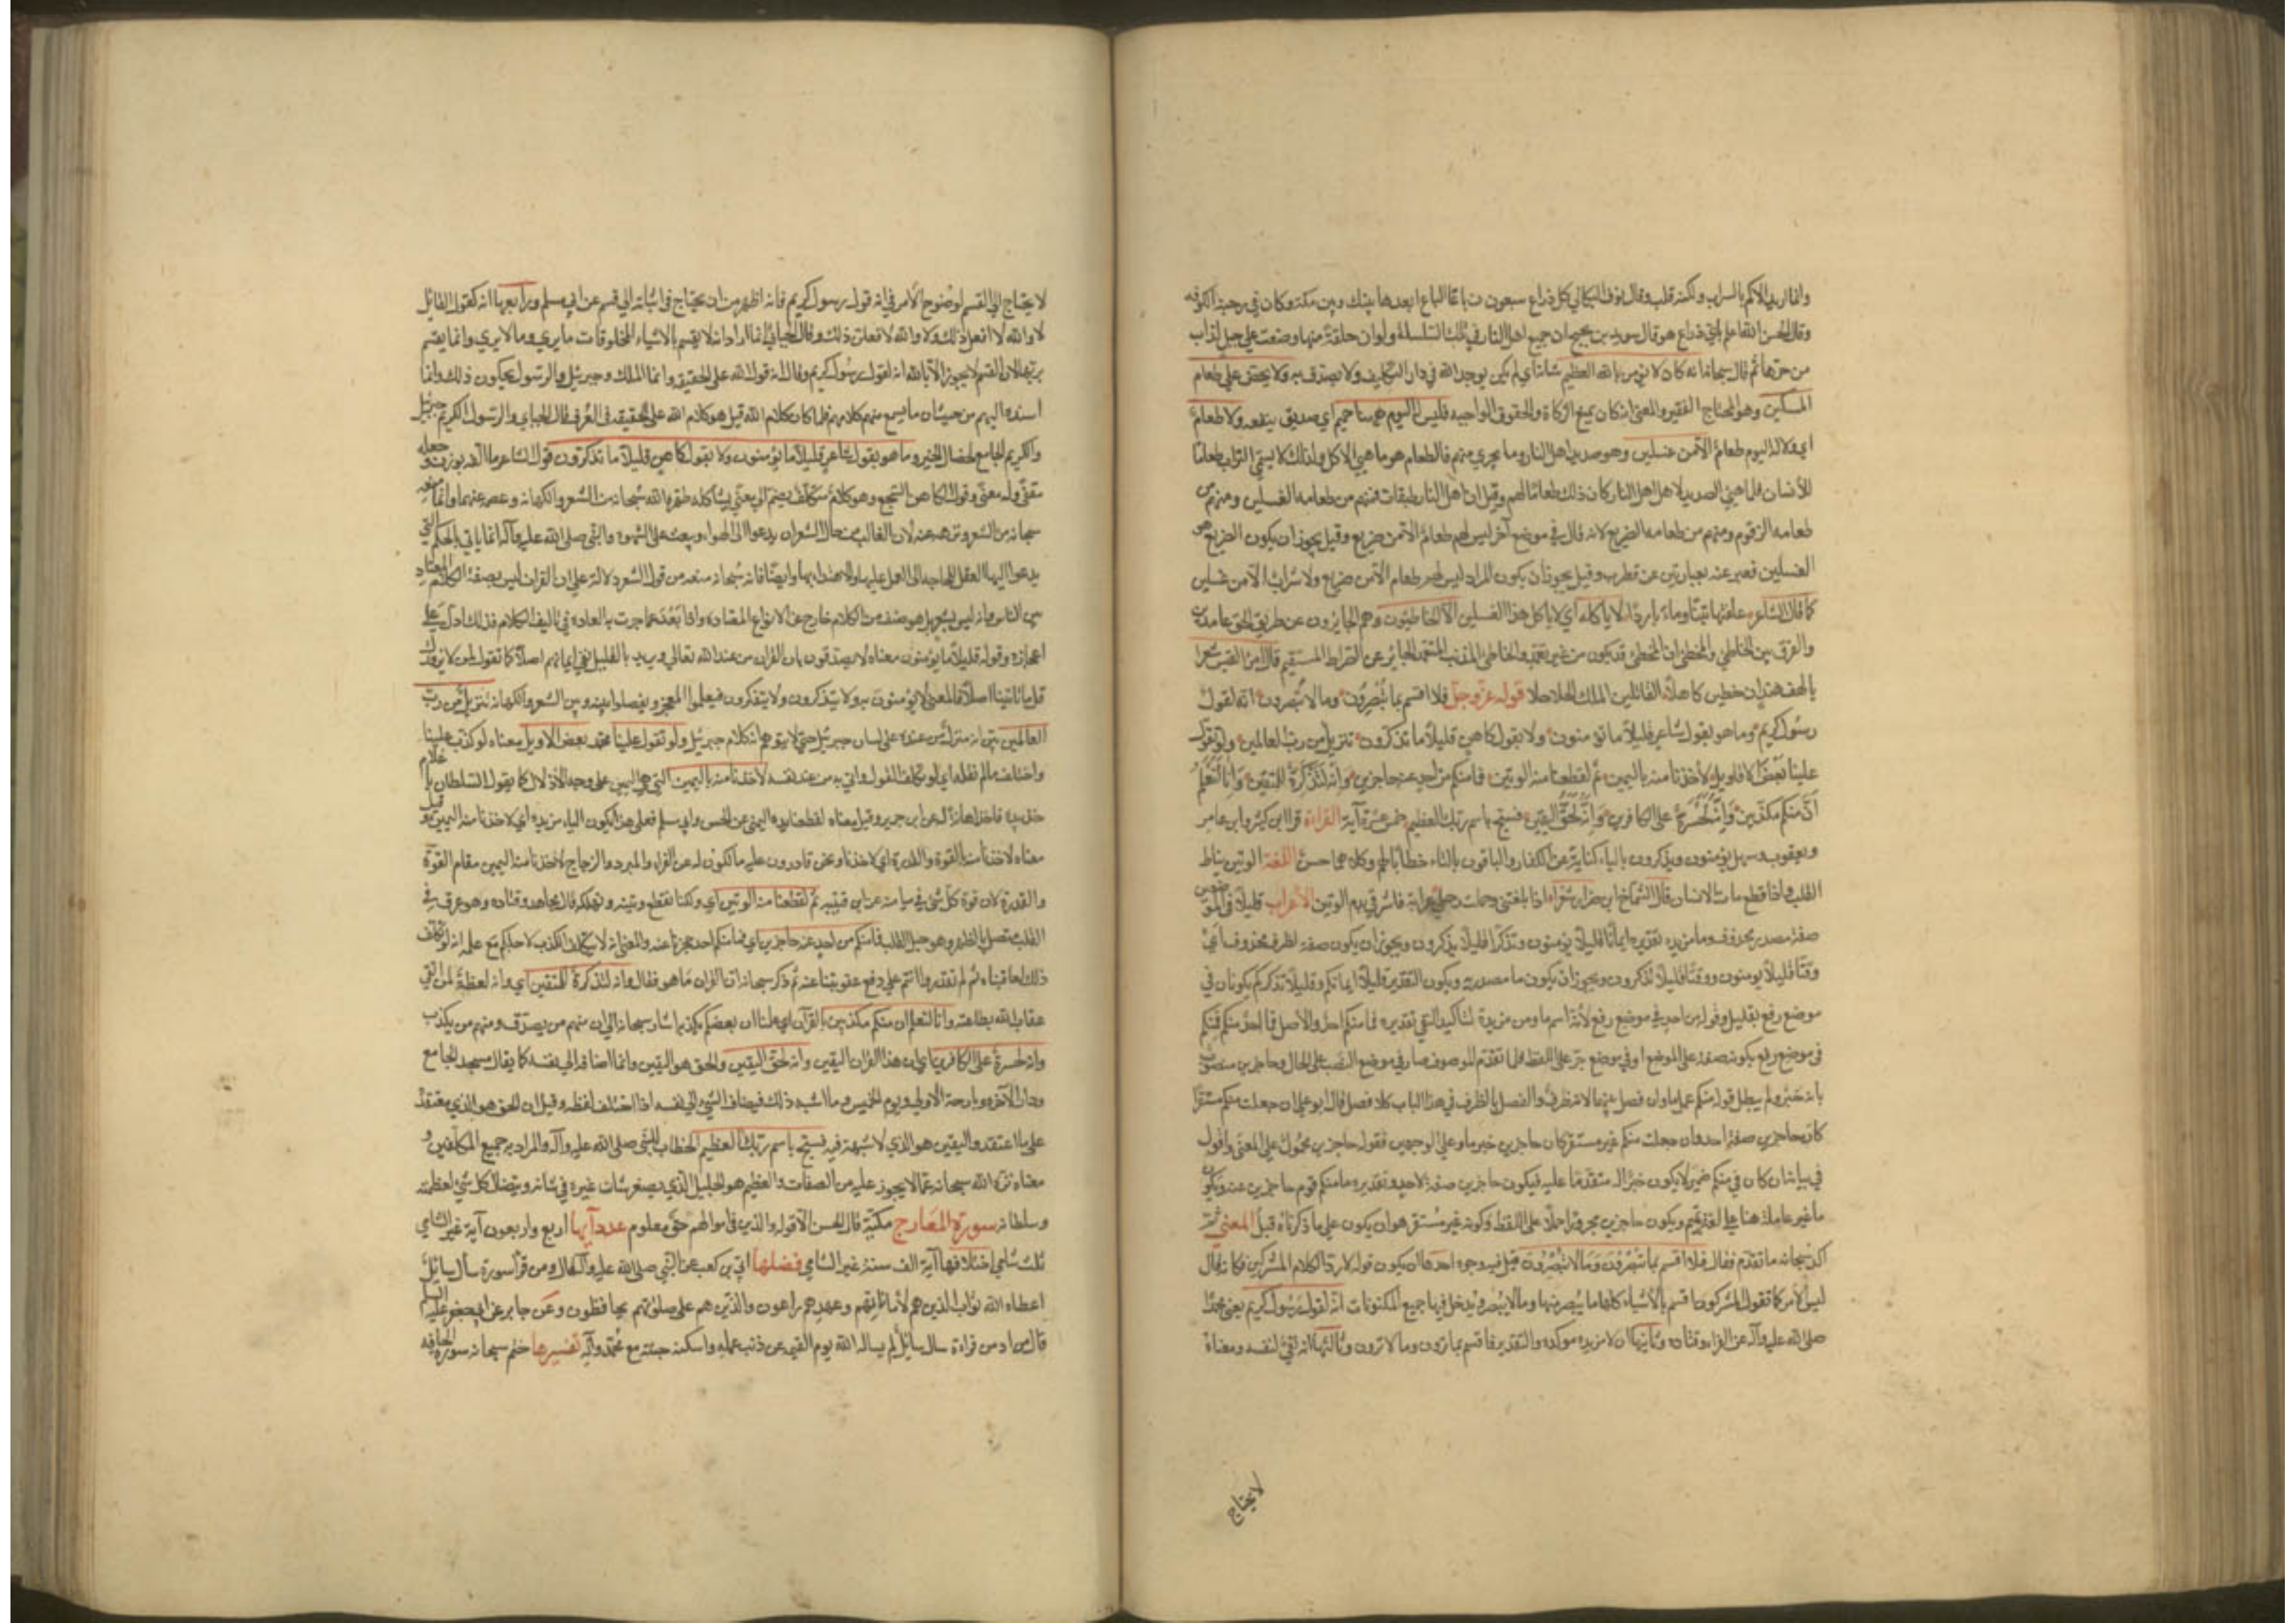 وقال نوف البكالي كل ذراع سبعون باعا الباع ابعد مما بينك وبين مكة وكان في رحبة الكوفة
وقال الحسن الله اعلم باي ذراع هو وقال سويد بن نجيح ان جميع اهل النار في تلك السلسلة ولو ان حلقة منها وضعت على جبل لذاب
من حرها ثم قال سبحانه انه كان لا يؤمن بالله العظيم شانه اي لم يكن يوحد الله في دار التكليف ولا يصدق به ولا يحض على طعام
المسكين وهو المحتاج الفقير والمعنى انه كان يمنع الزكاة والحقوق الواجبة فليس له اليوم ههنا حميم اي صديق ينفعه ولا طعام
اي ولا له اليوم طعام الا من غسلين وهو صديد اهل النار وما يجري منهم فالطعام هو ما هيئ للاكل ولذلك لا يسمى التراب طعاما
للانسان فلما هيئ الصديد لاهل النار كان ذلك طعاما لهم وقيل ان اهل النار طبقات فمنهم من طعامه الغسلين ومنهم من
طعامه الزقوم ومنهم من طعامه الضريع لانه قال في موضع آخر ليس لهم طعام الا من ضريع وقيل يجوز ان يكون الضريع هو
الغسلين فعبر عنه بعبارتين عن قطرب وقيل يجوز ان يكون المراد ليس لهم طعام الا من ضريع ولا شراب الا من غسلين
كما قال الشاعر علفتها تبنا وماء باردا لا ياكله اي لا ياكل هذا الغسلين الا الخاطئون وهم الجايزون عن طريق الحق عامدين
والفرق بين الخاطي والمخطئ ان المخطئ قد يكون من غير تعمد والخاطئ المذنب المتعمد الجائر عن الصراط المستقيم قال امرؤ القيس شعرا
يا لهف هند ان خطين كاهلا القاتلين الملك الحلاحلا قوله عز وجل فلا اقسم بما تبصرون وما لا تبصرون انه لقول
رسول كريم وما هو بقول شاعر قليلا ما تؤمنون ولا بقول كاهن قليلا ما تذكرون تنزيل من رب العالمين ولو تقول
علينا بعض الاقاويل لاخذنا منه باليمين ثم لقطعنا منه الوتين فما منكم من احد عنه حاجزين وانه لتذكرة للمتقين وانا لنعلم
ان منكم مكذبين وانه لحسرة على الكافرين وانه لحق اليقين فسبح باسم ربك العظيم خمس عشرة آية القراءة قرا ابن كثير وابن عامر
ويعقوب وسهل يؤمنون ويذكرون بالياء كناية عن الكفار والباقون بالتاء خطابا لهم وكلاهما حسن اللغة الوتين نياط
القلب واذا قطع مات الانسان قال الشماخ ابن ضرار شعرا اذا بلغتني وحملت رحلي عرابة فاشرقي بدم الوتين الاعراب قليلا في الموضعين
صفة مصدر محذوف وما مزيدة تقديره ايمانا قليلا تؤمنون وتذكرا قليلا تذكرون ويجوز ان يكون صفة لظرف محذوف اي
وقتا قليلا يومنون ووقتا قليلا تذكرون ويجوز ان يكون ما مصدرية ويكون التقدير قليلا ايمانكم وقليلا تذكركم يكونان في
موضع رفع بقليل وقوله من احد في موضع رفع لانه اسم ما ومن مزيدة لتاكيد النفي تقديره فما منكم احد والاصل فما احد منكم فمنكم
في موضع رفع بكونه صفة على الموضع او في موضع جر على اللفظ فلما تقدم الموصوف صار في موضع النصب على الحال وحاجزين منصوب
بانه خبر ولم يبطل قوله منكم عمل ما وان فصل بينهما لانه ظرف والفصل بالظرف في هذا الباب كلا فصل قال ابو علي ان جعلت منكم مستقرا
كان حاجزين صفة احد وان جعلت منكم غير مستقر كان حاجزين خبر ما وعلى الوجهين فقوله حاجزين محمول على المعنى واقول
في بيانه ان كان في منكم ضمير لاحد يكون خبرا له متقدما عليه فيكون حاجزين صفة لاحد وتقديره ما منكم قوم حاجزين عنه ويكون
ما غير عاملة هنا على لغة تميم ويكون حاجزين مجرورا حملا على اللفظ وكونه غير مستقر هو ان يكون على ما ذكرناه قبل المعنى ثم
اكد سبحانه ما تقدم فقال فلا اقسم بما تبصرون وما لا تبصرون قيل فيه وجوه احدها ان يكون قوله لا ردا لكلام المشركين فكانه قال
ليس الامر كما تقول المشركون اقسم بالاشياء كلها ما يبصر منها وما لا يبصر ويدخل فيها جميع المكنونات انه لقول رسول كريم يعني محمدا
صلى الله عليه وآله عن الفراء وقتادة وثانيها ان لا مزيدة موكدة والتقدير فاقسم بما ترون وما لا ترون وثالثها انه نفي للقسم ومعناه
لا يحتاج
لا يحتاج الى القسم لوضوح الامر في انه قول رسول كريم فانه اظهر من ان يحتاج في اثباته الى قسم عن ابي مسلم ورابعها انه كقول القائل
لا والله لا افعل ذلك ولا والله لافعلن ذلك وقال الجبائي انما اراد انه لا يقسم بالاشياء المخلوقات ما يرى وما لا يرى وانما يقسم
بربها لان القسم لا يجوز الا بالله انه لقول رسول كريم وقال انه قول الله على الحقيقة وانما الملك وجبرئيل والرسول يحكون ذلك وانما
اسنده اليهم من حيث ان ما يسمع منهم كلامهم فلما كان كلام الله قيل هو كلام الله على الحقيقة في العرف قال الجبائي والرسول الكريم جبرئيل
والكريم الجامع لخصال الخير وما هو بقول شاعر قليلا ما تؤمنون ولا بقول كاهن قليلا ما تذكرون قول الشاعر ما الفه بوزن وجعله
مقفى وله معنى وقول الكاهن السجع وهو كلام متكلف يضم الى معنى يشاكله طهره الله سبحانه من الشعر والكهانة وعصمه عنهما وانما منعه
سبحانه من الشعر ونزهه عنه لان الغالب من حال الشعر ان يدعوا الى الهوى ويبعث على الشهوة والنبي صلى الله عليه وآله انما ياتي بالحكم التي
يدعوا اليها العقل للحاجة الى العمل عليها والاهتداء بها وايضا فانه سبحانه منعه من قول الشعر دلالة على ان القران ليس بصفة الكلام المعتاد
بين الناس وانه ليس بشعر بل هو صنف من الكلام خارج عن الانواع المعتادة واذا بعد عما جرت به العادة في تاليف الكلام فذلك ادل على
اعجازه وقوله قليلا ما يؤمنون معناه لا يصدقون بان القران من عند الله تعالى ويريد بالقليل نفي ايمانهم اصلا كما تقول لمن لا يزورك
قل ما تاتينا اصلا فالمعنى لا يؤمنون به ولا يتذكرون ولا يتفكرون فيعلموا المعجز ويفصلوا بينه وبين الشعر والكهانة تنزيل من رب
العالمين بين انه منزل من عنده على لسان جبرئيل حتى لا يتوهم انه كلام جبرئيل ولو تقول علينا محمد بعض الاقاويل معناه لو كذب علينا
واختلف ما لم نقله اي لو تكلف القول واتى به من عند نفسه لاخذنا منه باليمين التي هي اليمين على وجه الاذلال كما يقول السلطان يا غلام
خذ بيده فاخذها اذلالا عن ابن جرير وقيل معناه لقطعنا يده اليمنى عن الحسن وابي مسلم فعلى هذا يكون الباء مزيدة اي لاخذنا منه اليمين وقيل
معناه لاخذنا منه بالقوة والقدرة اي لاخذناه ونحن قادرون عليه مالكون له عن الفراء والمبرد والزجاج لاخذنا منه اليمين مقام القوة
والقدرة لان قوة كل شيء في ميامنه عن ابن قتيبة ثم لقطعنا منه الوتين اي ولكنا نقطع وتينه ونهلكه قال مجاهد وقتادة وهو عرق في
القلب متصل بالظهر وهو حبل القلب فما منكم من احد عنه حاجزين اي فما منكم احد يحجزنا عنه والمعنى انه لا يتكلف الكذب لاجلكم مع علمه انه لو تكلف
ذلك لعاقبناه ثم لم تقدروا انتم على دفع عقوبتنا عنه ثم ذكر سبحانه ان القران ما هو فقال وانه لتذكرة للمتقين اي وانه لعظة لمن اتقى
عقاب الله بطاعته وانا لنعلم ان منكم مكذبين بالقرآن اي علمنا ان بعضكم يكذب به اشار سبحانه الى ان منهم من يصدق ومنهم من يكذب
وانه لحسرة على الكافرين اي ان هذا القران اليقين وانه لحق اليقين والحق هو اليقين وانما اضافه الى نفسه كما يقال مسجد الجامع
ودار الآخرة وبارحة الاولى ويوم الخميس وما اشبه ذلك فيضاف الشيء الى نفسه اذا اختلف لفظه وقيل ان الحق هو الذي معتقده
على ما اعتقده واليقين هو الذي لا شبهة فيه فسبح باسم ربك العظيم الخطاب للنبي صلى الله عليه وآله والمراد به جميع المكلفين و
معناه نزه الله سبحانه عما لا يجوز عليه من الصفات والعظيم هو الجليل الذي يصغر شان غيره في شانه ويتضاءل كل شيء لعظمته
وسلطانه سورة المعارج مكية قال الحسن الا قوله والذين في اموالهم حق معلوم عدد آيها اربع واربعون آية غير الشامي
ثلث شامي اختلافها آية الف سنة غير الشامي فضلها ابي بن كعب عن النبي صلى الله عليه وآله قال ومن قرأ سورة سأل سائل
اعطاه الله ثواب الذين هم لاماناتهم وعهدهم راعون والذين هم على صلوتهم يحافظون وعن جابر عن ابي جعفر عليه السلم
قال من ادمن قراءة سال سائل لم يساله الله يوم القيمة عن ذنب عمله واسكنه جنته مع محمد وآله تفسيرها ختم سبحانه سورة الحاقة